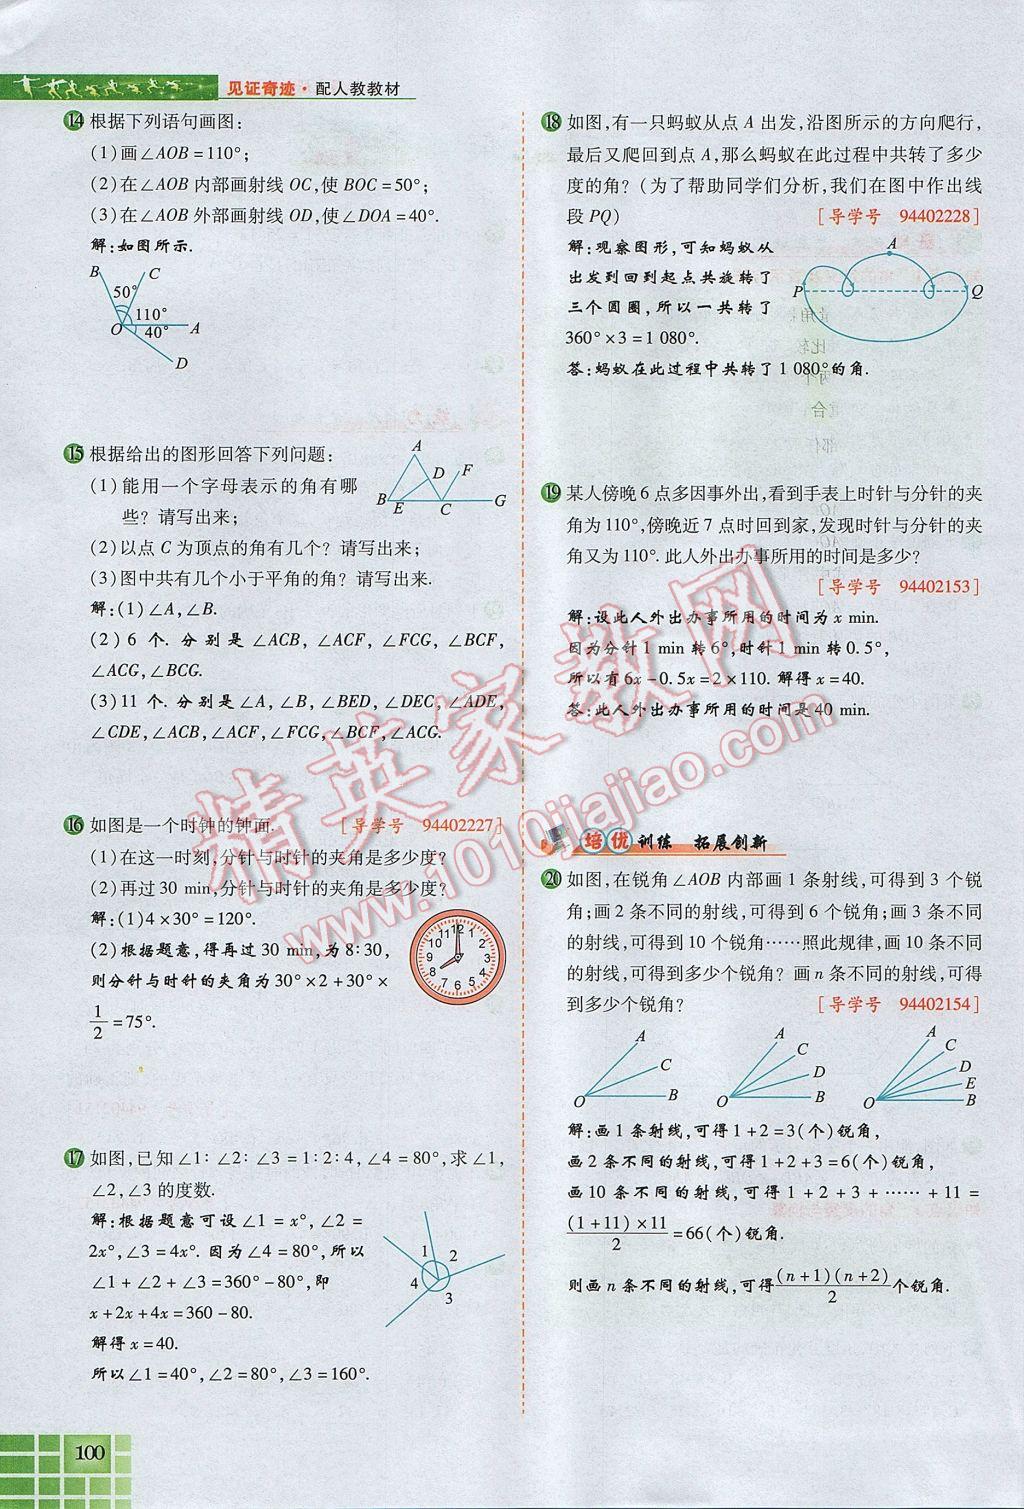 见证奇迹·配人教教材
14 根据下列语句画图:
(1)画∠AOB=110°;
(2)在∠AOB内部画射线OC,使BOC=50°;
(3)在∠AOB外部画射线OD,使∠DOA=40°.
解:如图所示.
B C
50°
110°
O 40° A
D
15 根据给出的图形回答下列问题:
(1)能用一个字母表示的角有哪
些?请写出来;
(2)以点C为顶点的角有几个?请写出来;
(3)图中共有几个小于平角的角?请写出来.
A
D F
B E C G
解:(1)∠A,∠B.
(2)6个.分别是∠ACB,∠ACF,∠FCG,∠BCF,
∠ACG,∠BCG.
(3)11个.分别是∠A,∠B,∠BED,∠DEC,∠ADE,
∠CDE,∠ACB,∠ACF,∠FCG,∠BCF,∠ACG.
16 如图是一个时钟的钟面. [导学号 94402227]
(1)在这一时刻,分针与时针的夹角是多少度?
(2)再过30 min,分针与时针的夹角是多少度?
解:(1)4×30°=120°.
(2)根据题意,得再过30 min,为8:30,
则分针与时针的夹角为30°×2+30°×
1/2=75°.
12 1 2 3 4 5 6 7 8 9 10 11
17 如图,已知∠1∶∠2∶∠3=1∶2∶4,∠4=80°,求∠1,
∠2,∠3的度数.
解:根据题意可设∠1=x°,∠2=
2x°,∠3=4x°.因为∠4=80°,所以
∠1+∠2+∠3=360°-80°,即
x+2x+4x=360-80.
解得x=40.
所以∠1=40°,∠2=80°,∠3=160°.
1 2
4
3
100
18 如图,有一只蚂蚁从点A出发,沿图所示的方向爬行,
最后又爬回到点A,那么蚂蚁在此过程中共转了多少
度的角?(为了帮助同学们分析,我们在图中作出线
段PQ) [导学号 94402228]
解:观察图形,可知蚂蚁从
出发到回到起点共旋转了
三个圆圈,所以一共转了
360°×3=1 080°.
答:蚂蚁在此过程中共转了1 080°的角.
A
P Q
19 某人傍晚6点多因事外出,看到手表上时针与分针的夹
角为110°,傍晚近7点时回到家,发现时针与分针的夹
角又为110°.此人外出办事所用的时间是多少?
[导学号 94402153]
解:设此人外出办事所用的时间为x min.
因为分针1 min转6°,时针1 min转0.5°,
所以有6x-0.5x=2×110.解得x=40.
答:此人外出办事所用的时间是40 min.
培优训练 拓展创新
20 如图,在锐角∠AOB内部画1条射线,可得到3个锐
角;画2条不同的射线,可得到6个锐角;画3条不同
的射线,可得到10个锐角……照此规律,画10条不同
的射线,可得到多少个锐角?画n条不同的射线,可得
到多少个锐角? [导学号 94402154]
A C B O
A C D B O
A C D E B O
解:画1条射线,可得1+2=3(个)锐角,
画2条不同的射线,可得1+2+3=6(个)锐角,
画10条不同的射线,可得1+2+3+……+11=
(1+11)×11/2=66(个)锐角.
则画n条不同的射线,可得(n+1)(n+2)/2个锐角.
精英家教网
www.1010jiajiao.com